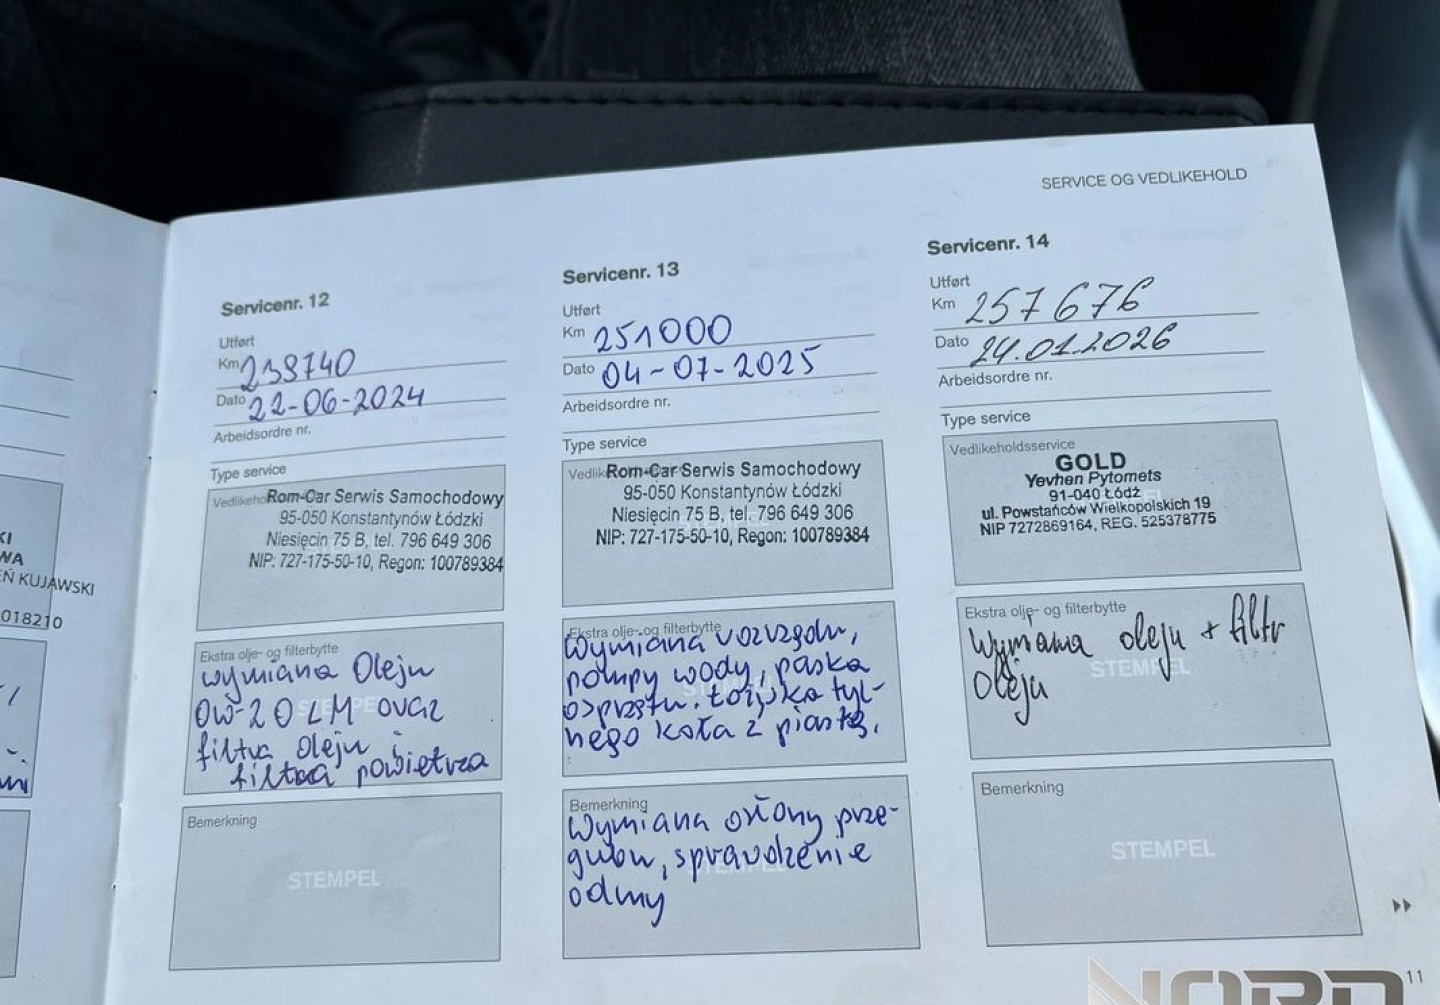 SERVICE OG VEDLIKEHOLD
Servicenr. 12
Utført
Km 238740
Dato 22-06-2024
Arbeidsordre nr.
Type service
Vedlikeho
Rom-Car Serwis Samochodowy
95-050 Konstantynów Łódzki
Niesięcin 75 B, tel. 796 649 306
NIP: 727-175-50-10, Regon: 100789384
Ekstra olje- og filterbytte
wymiana Oleju
0W-20 LM oraz
filtra oleju i
filtra powietrza
Bemerkning
STEMPEL
Servicenr. 13
Utført
Km 251000
Dato 04-07-2025
Arbeidsordre nr.
Type service
Vedlik
Rom-Car Serwis Samochodowy
95-050 Konstantynów Łódzki
Niesięcin 75 B, tel. 796 649 306
NIP: 727-175-50-10, Regon: 100789384
Ekstra olje- og filterbytte
Wymiana rozrządu,
pompy wody, paska
osprzętu. Łożyska tyl-
nego koła z piastą.
Bemerkning
Wymiana osłony prze-
gubu, sprawdzenie
odmy
Servicenr. 14
Utført
Km 257676
Dato 24.01.2026
Arbeidsordre nr.
Type service
Vedlikeholdsservice
GOLD
Yevhen Pytomets
91-040 Łódź
ul. Powstańców Wielkopolskich 19
NIP 7272869164, REG. 525378775
Ekstra olje- og filterbytte
Wymiana oleju + filtr
Oleju
STEMPEL
Bemerkning
STEMPEL
KI
WA
EŃ KUJAWSKI
018210
11
NORD